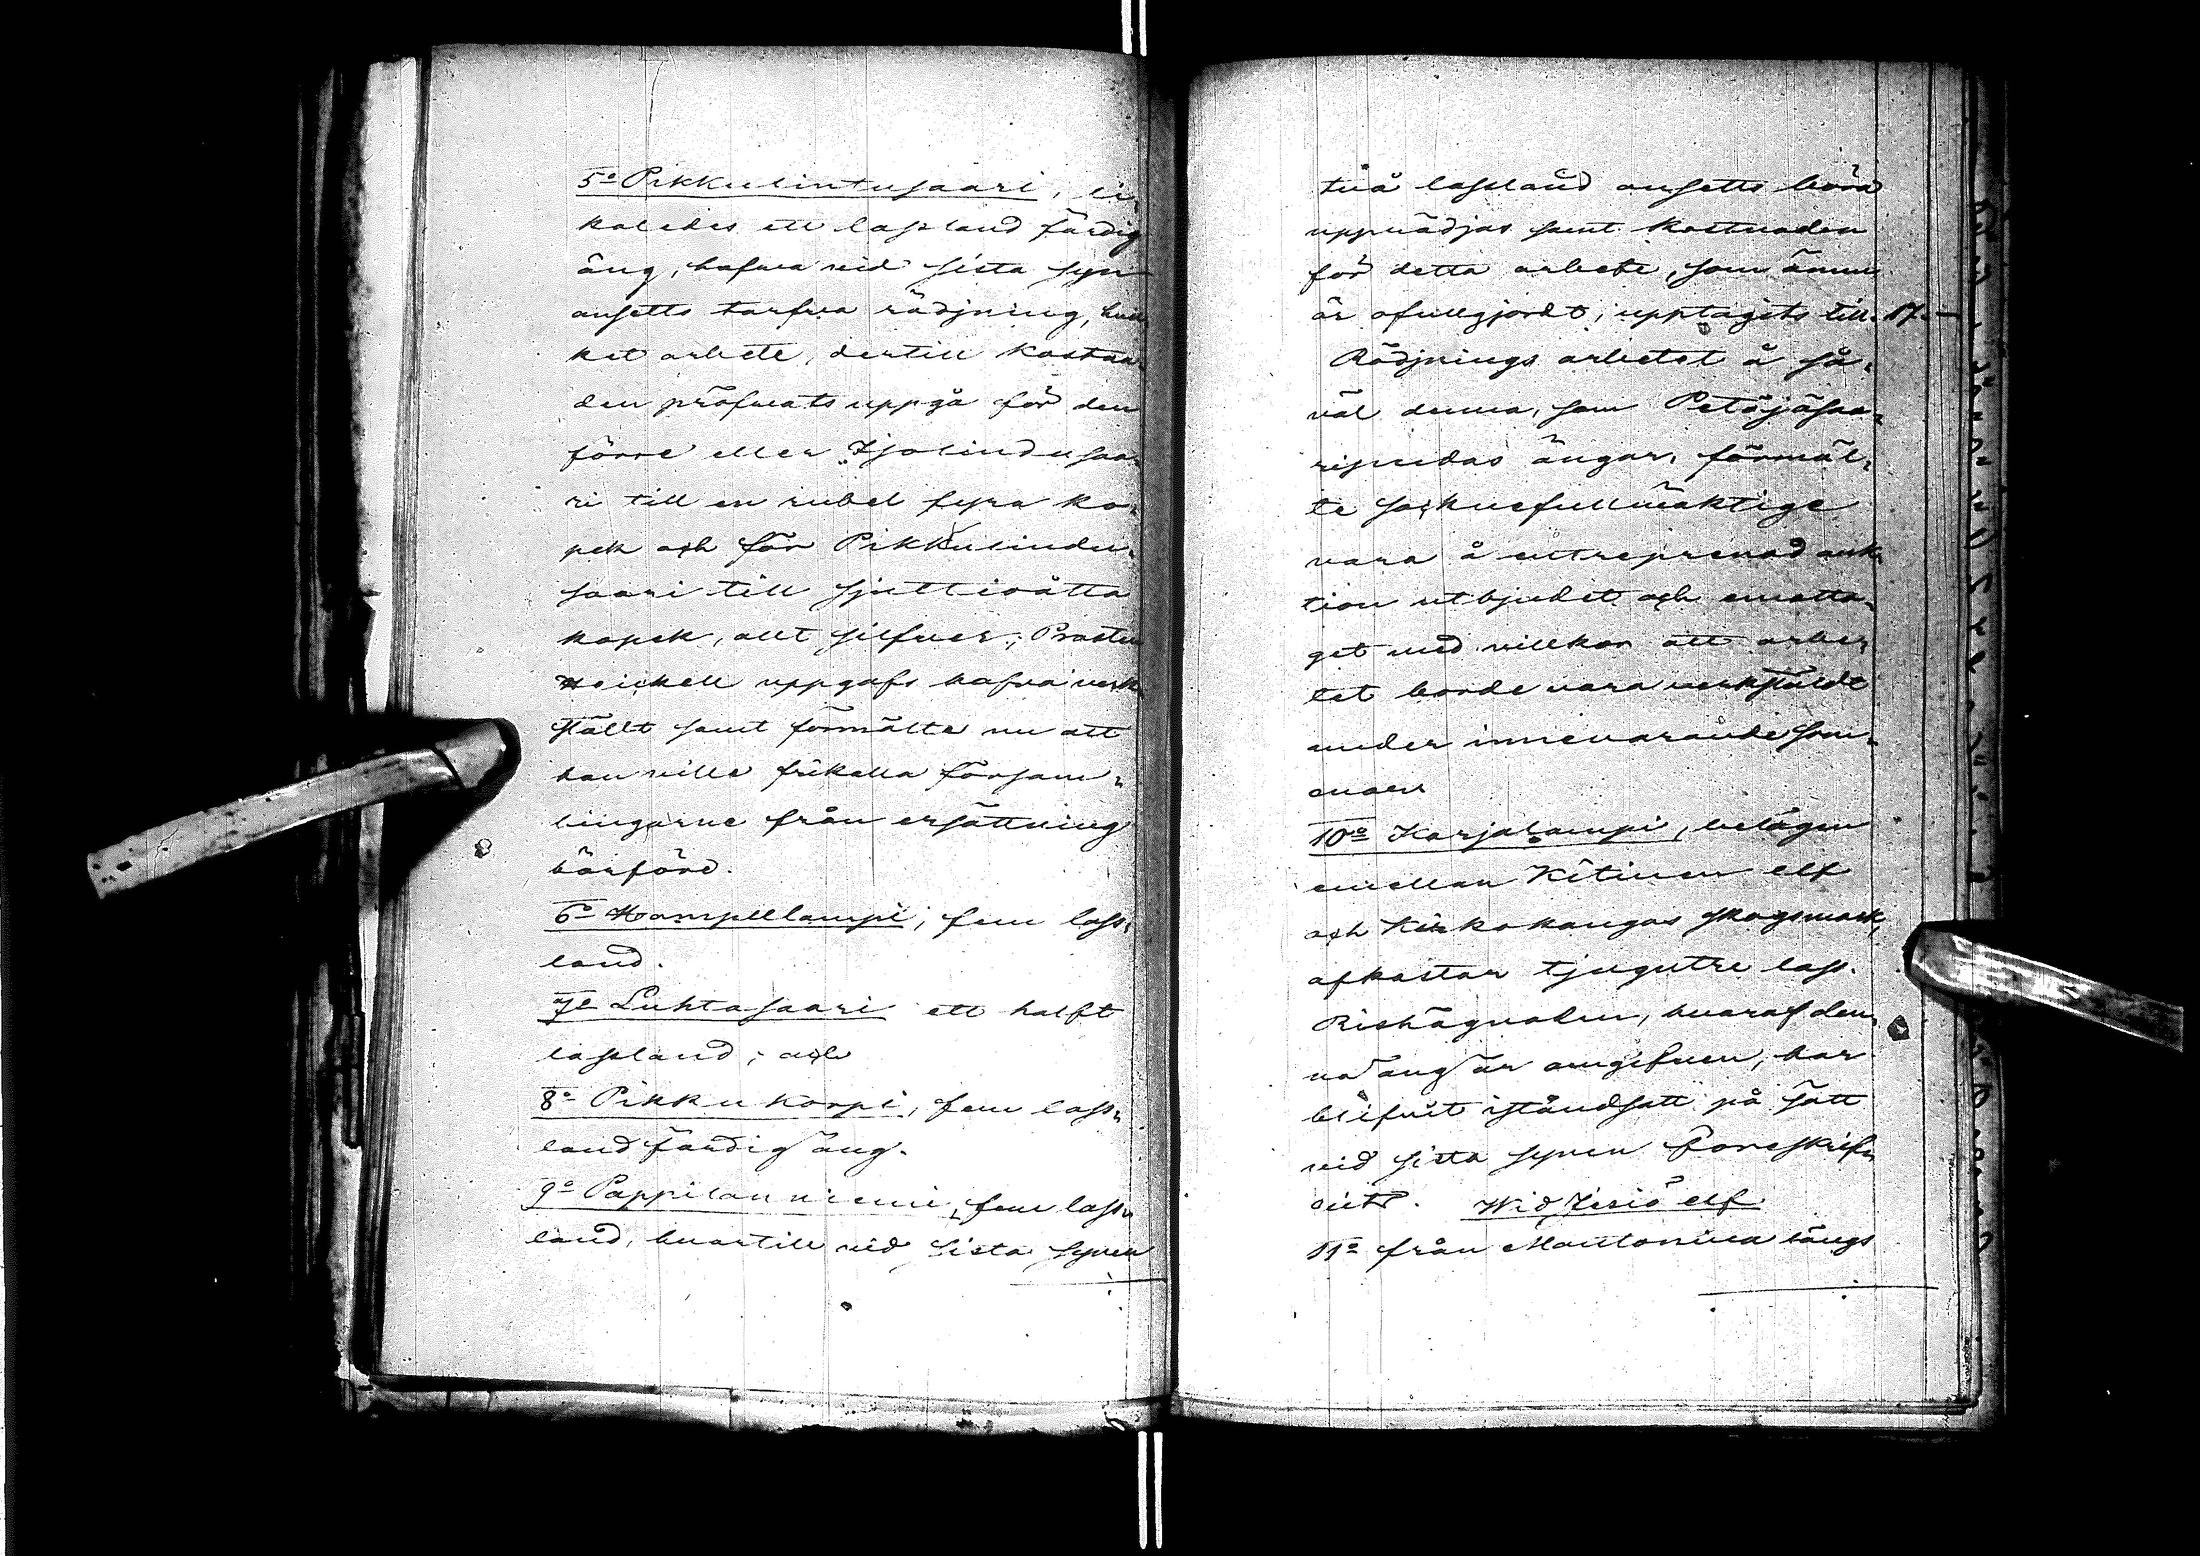 5o Pikkulintusaari, in¬
kaledes ett lassland färdig
äng, hafva vid sista syn
ansetts tarfva rödjning, hvil¬
ket arbete, dertill kostna¬
den pröfvats uppgå för den
förre eller Isolindusaa¬
ri till en rubel fyra ko¬
pek och för Pikkulindu¬
saari till sjuttioåtta
kopek, allt silfver; Prosten
Heickell uppgafs hafva verk
ställt samt förmälte nu att
han ville frikalla försam¬
lingarne från ersättning
härföre.
6o Hampellampi, fem lass¬
land.
7o Luhtasaari ett halft
lassland; och
8o Pikku korpi, fem lass¬
land färdig äng.
9o Pappilan niemi, fem lass¬
land, hvartill vid sista synen
två lassland ansetts böra
uppnödjas samt kostnaden
för detta arbete, som ännu
är ofullgjordt, upptagits till. 17.—
Rödjnings arbetet å så¬
väl denna, som Petäjäsaa¬
ripuidas ängar, förmäl¬
te socknefullmäktige
vara å entreprenad auk¬
tion utbjudet och emotta¬
get med villkor att arbe¬
tet borde vara verkställdt
under innevarande som¬
mar
10o Karjalampi, belägen
emellan Kitinen elf
och Kirkokangas skogsmark,
afkastar tjugutre lass.
Rishägnaden, hvaraf den¬
na äng är omgifven, har
blifvit iståndsatt på sätt
vid sista synen föreskrif¬
vits. Wid Jesiö elf
11o från Mantovaara längs